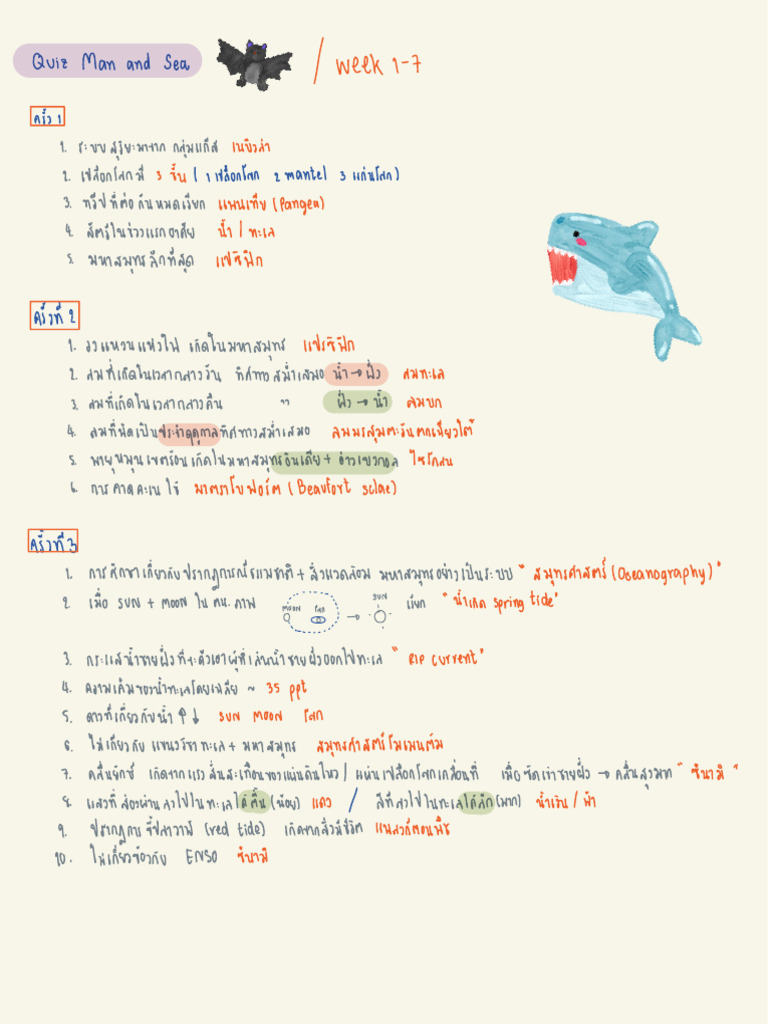 Quiz Man and Sea / week 1-7
ครั้ง 1
1. ระบบสุริยะมาจาก กลุ่มแก๊ส เนบิวล่า
2. เปลือกโลกมี 3 ชั้น ( 1 เปลือกโลก 2 mantel 3 แก่นโลก )
3. ทวีปที่ต่อกันหมดเรียก แพนเกีย (Pangea)
4. สัตว์ในช่วงแรกอาศัย น้ำ / ทะเล
5. มหาสมุทรลึกที่สุด แปซิฟิก
ครั้งที่ 2
1. วงแหวนแห่งไฟ เกิดในมหาสมุทร แปรซิฟิก
2. ลมที่เกิดในเวลากลางวัน ทิศทางสม่ำเสมอ น้ำ → ฝั่ง ลมทะเล
3. ลมที่เกิดในเวลากลางคืน " ฝั่ง → น้ำ ลมบก
4. ลมที่พัดเป็นประจำฤดูกาลทิศทางสม่ำเสมอ ลมมรสุมตะวันตกเฉียงใต้
5. พายุหมุนเขตร้อนเกิดในมหาสมุทรอินเดีย + อ่าวเบงกอล ไซโกลน
6. การคาดคะเน ใช้ มาตราโบฟอร์ต (Beaufort sclae)
ครั้งที่ 3
1. การศึกษาเกี่ยวกับปรากฏการณ์ธรรมชาติ + สิ่งแวดล้อม มหาสมุทรอย่างเป็นระบบ " สมุทรศาสตร์ (Oceanography) "
2. เมื่อ SUN + MOON ใน ตน. ภาพ MOON โลก → SUN เรียก " น้ำเกิด spring tide "
3. กระแสน้ำชายฝั่งที่จะดึงเอาผู้ที่เล่นน้ำชายฝั่งออกไปทะเล " Rip current "
4. ความเค็มของน้ำทะเลโดยเฉลี่ย ~ 35 ppt
5. ดาวที่เกี่ยวกับน้ำ ↑ ↓ SUN MOON โลก
6. ไม่เกี่ยวกับ แขนงวิชาทะเล + มหาสมุทร สมุทรศาสตร์โมเมนตัม
7. คลื่นยักษ์ เกิดจากแรงสั่นสะเทือนของแผ่นดินไหว / แผ่นเปลือกโลกเคลื่อนที่ เมื่อซัดเข้าชายฝั่ง → คลื่นสูงมาก " ซึนามิ "
8. แสงที่ส่องผ่านลงไปในทะเลได้ตื้น (น้อย) แดง / สีที่ลงไปในทะเลได้ลึก (มาก) น้ำเงิน / ฟ้า
9. ปรากฏการขี้ปลาวาฬ (red tide) เกิดจากสิ่งมีชีวิต แพลงก์ตอนพืช
10. ไม่เกี่ยวข้องกับ ENSO ซึนามิ